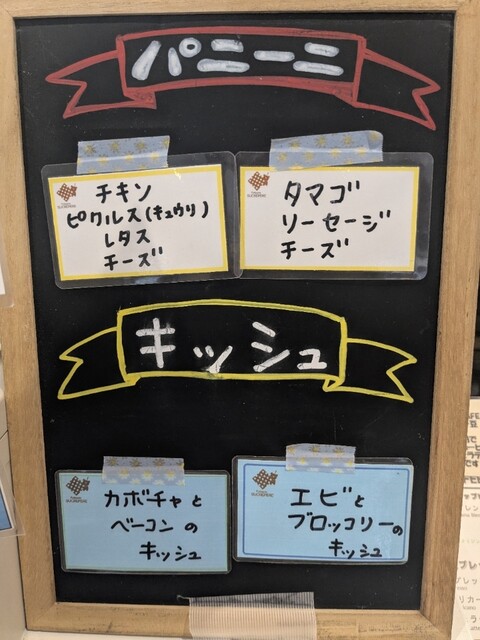 パニーニ
チキン
ピクルス(キュウリ)
レタス
チーズ
タマゴ
ソーセージ
チーズ
キッシュ
カボチャと
ベーコンの
キッシュ
エビと
ブロッコリーの
キッシュ